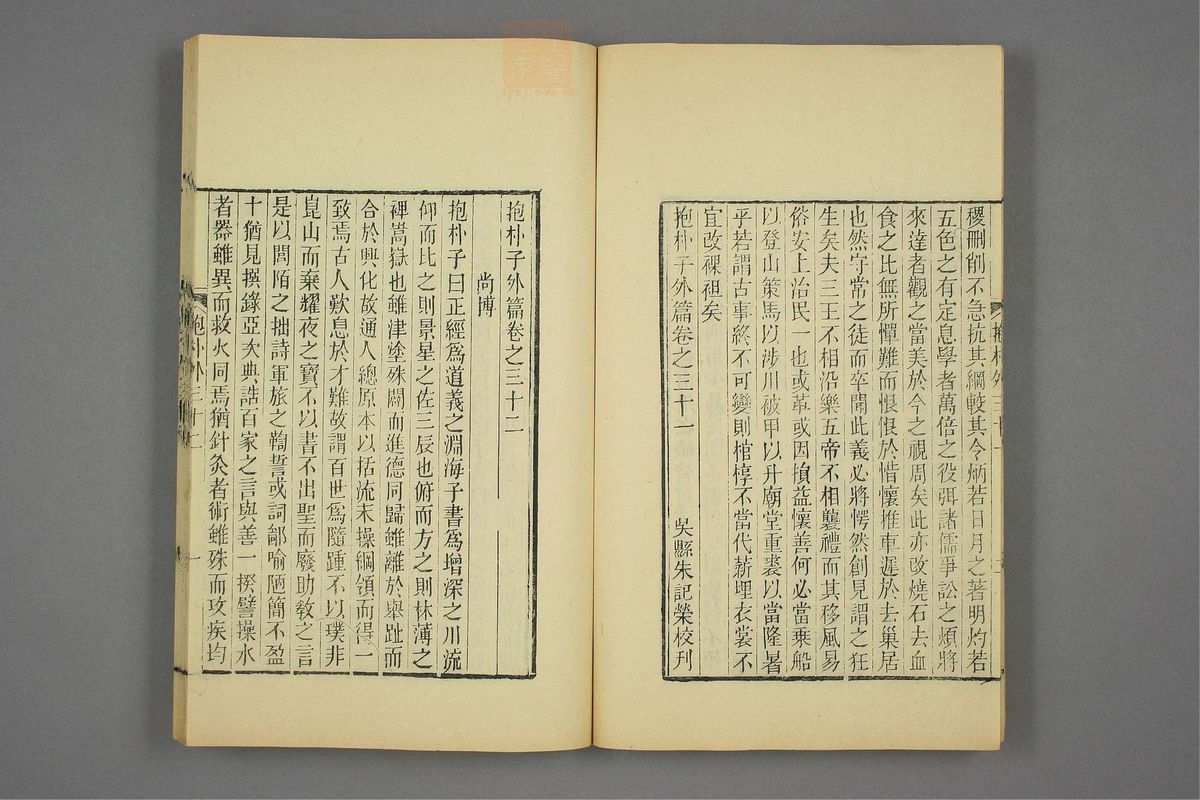 稷刪削不急抗其綱較其令炳若日月之著明灼若
五色之有定息學者萬倍之役弭諸儒爭訟之煩將
來達者觀之當美於今之視周矣此亦改燒石去血
食之比無所憚難而恨恨於惜懷推車遲於去巢居
也然守常之徒而卒聞此義必將愕然創見謂之狂
生矣夫三王不相沿樂五帝不相襲禮而其移風易
俗安上治民一也或革或因損益懷善何必當乘船
以登山策馬以涉川被甲以升廟堂重裘以當隆暑
乎若謂古事終不可變則棺椁不當代薪埋衣裳不
宜改裸袒矣
抱朴子外篇卷之三十一 吳縣朱記榮校刊
抱朴子外篇卷之三十二
尚博
抱朴子曰正經爲道義之淵海子書爲增深之川流
仰而比之則景星之佐三辰也俯而方之則林薄之
裨嵩嶽也雖津塗殊闢而進德同歸雖離於舉趾而
合於興化故通人總原本以括流末操綱領而得一
致焉古人歎息於才難故謂百世爲隨踵不以璞非
崑山而棄耀夜之寶不以書不出聖而廢助敎之言
是以閭陌之拙詩軍旅之鞫誓或詞鄙喻陋簡不盈
十猶見撰錄亞次典誥百家之言與善一揆譬操水
者器雖異而救火同焉猶針灸者術雖殊而攻疾均
抱朴外三十二 一